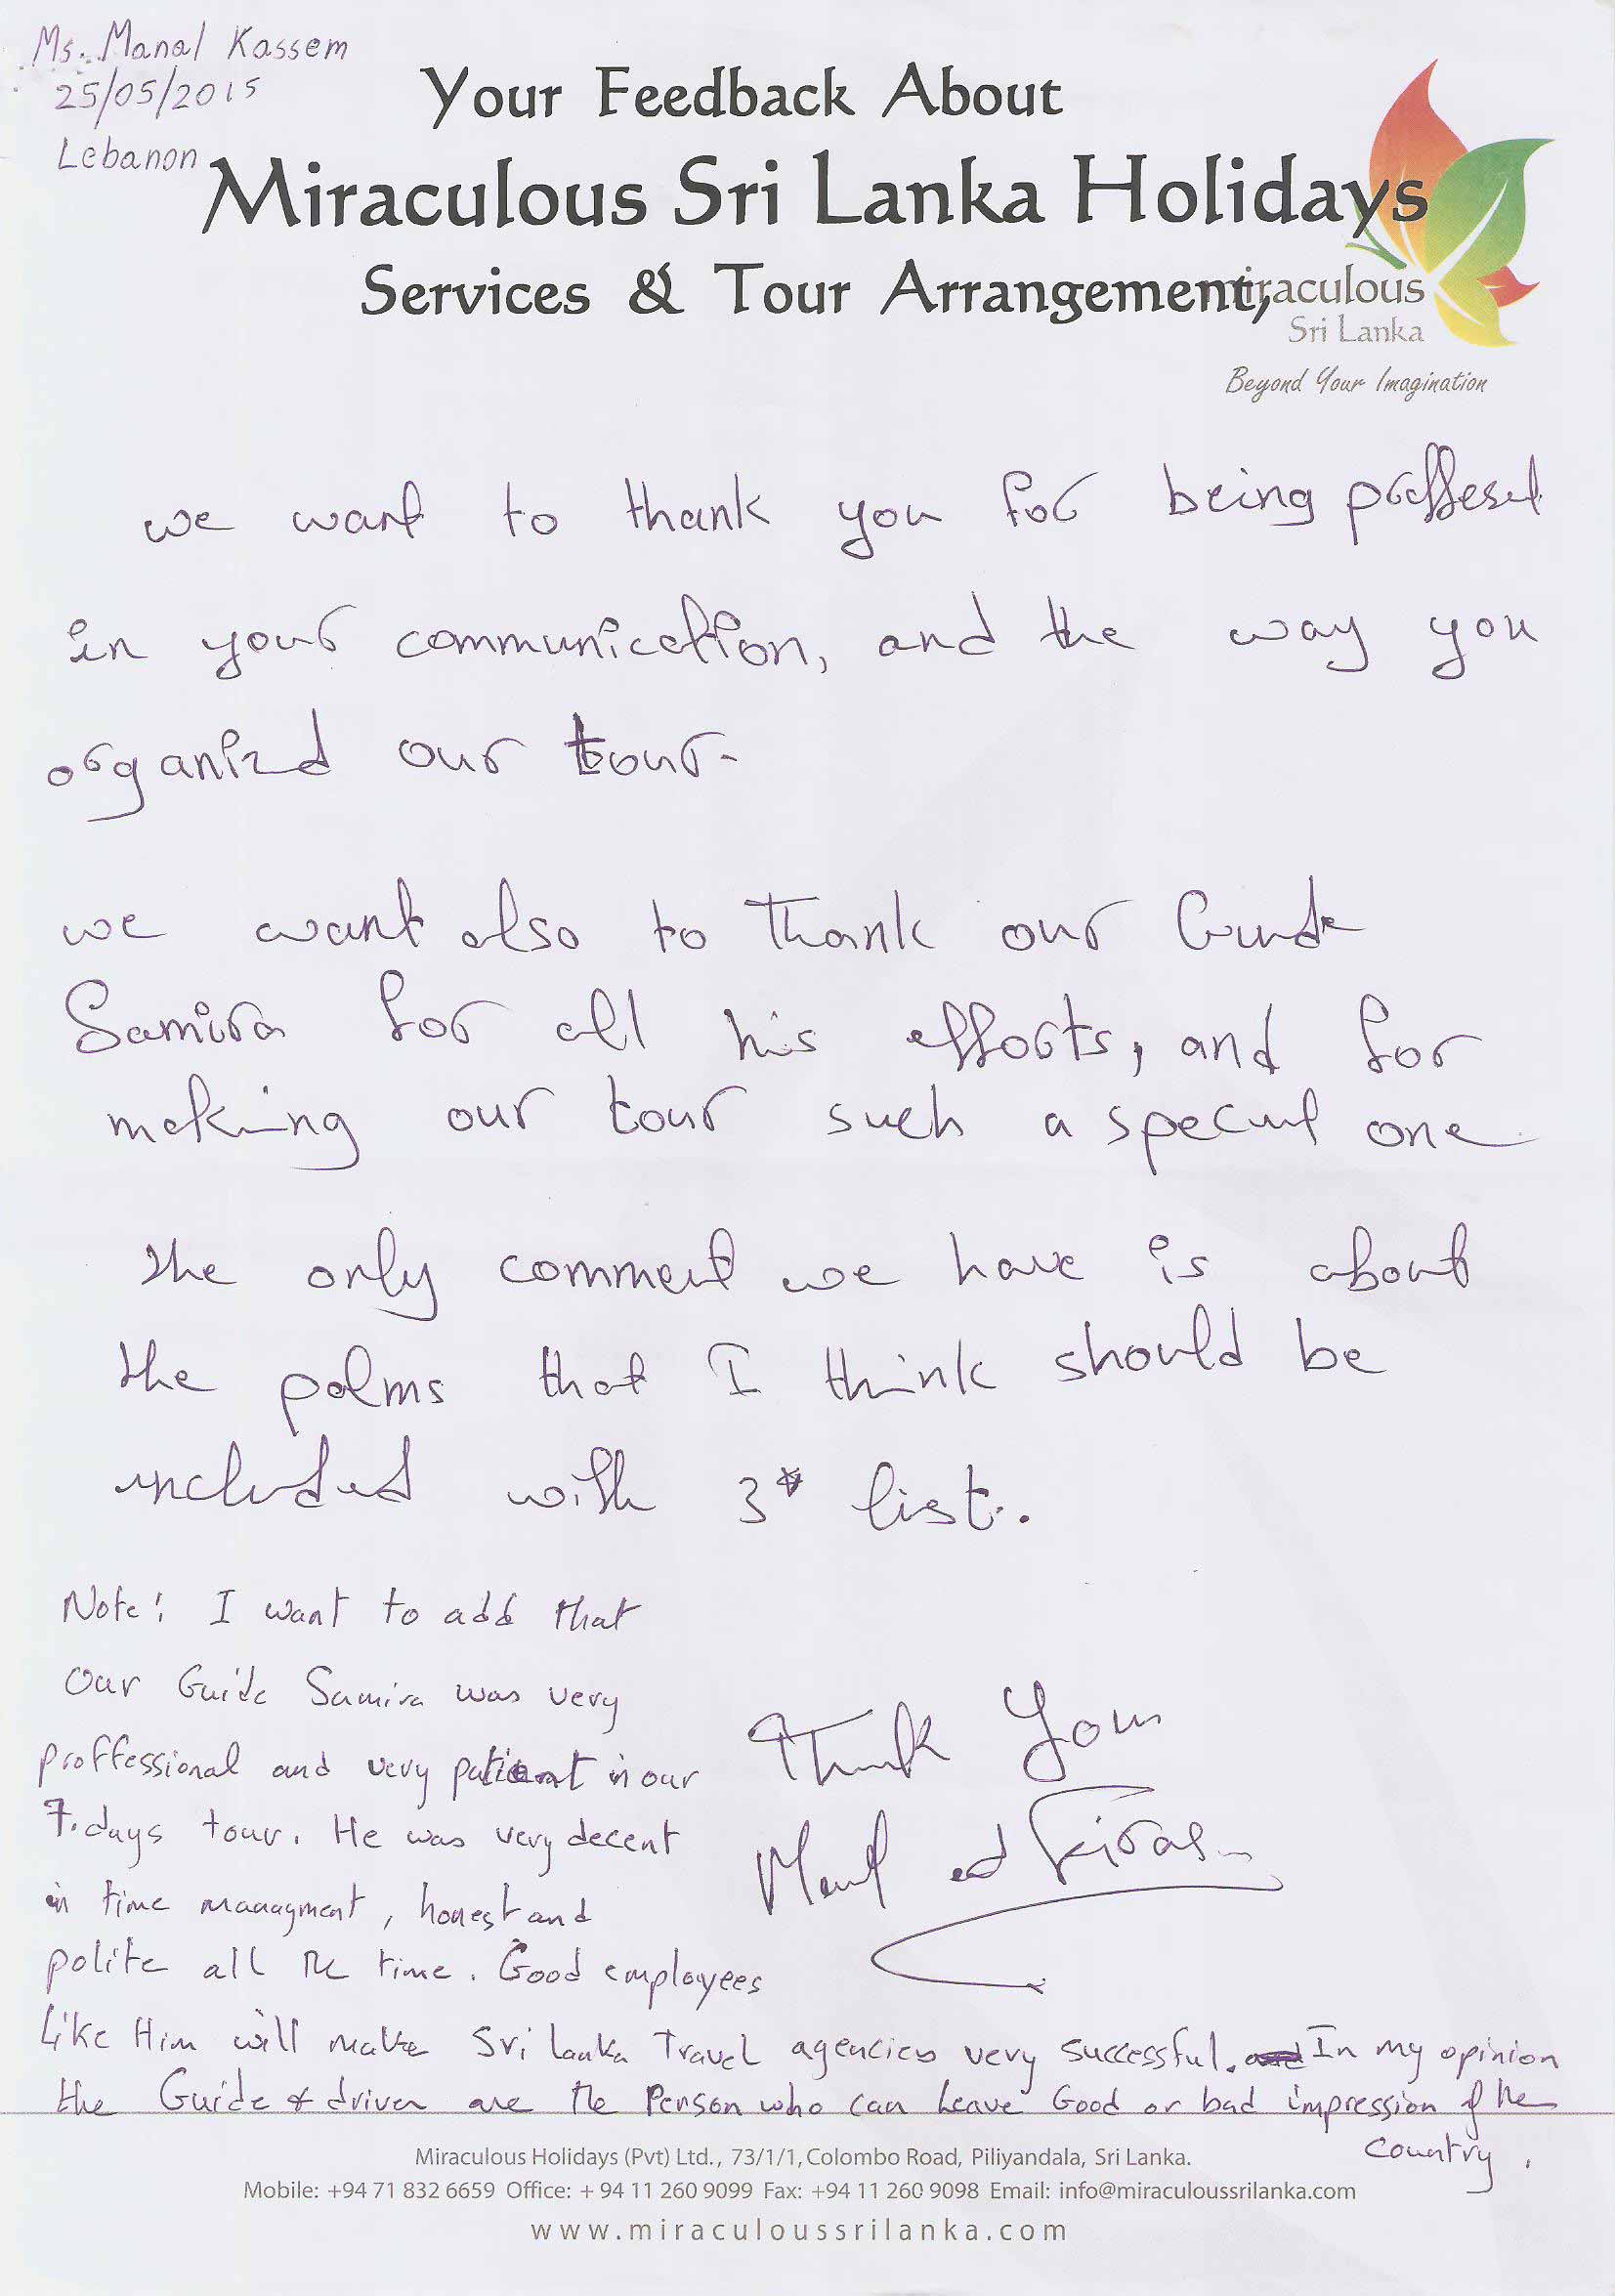 Ms. Manal Kassem
25/05/2015
Lebanon
Your Feedback About
Miraculous Sri Lanka Holidays
Services & Tour Arrangement,
miraculous
Sri Lanka
Beyond Your Imagination
we want to thank you for being
in your communication, and the way you
organizd our tour.
we want also to thank our Guide
Samira for all his efforts, and for
making our tour such a special one
the only comment we have is about
the palms that I think should be
included with 3* list.
Note: I want to add that
Our Guide Samira was very
proffessional and very patient in our
7.days tour. He was very decent
in time managment, honest and
polite all the time. Good employees
Like Him will make Sri lanka Travel agencies very successful. In my opinion
the Guide & driver are the Person who can leave Good or bad impression of the
country.
Thank You
Manal and Firas
Miraculous Holidays (Pvt) Ltd., 73/1/1, Colombo Road, Piliyandala, Sri Lanka.
Mobile: +94 71 832 6659 Office: + 94 11 260 9099 Fax: +94 11 260 9098 Email: info@miraculoussrilanka.com
www.miraculoussrilanka.com